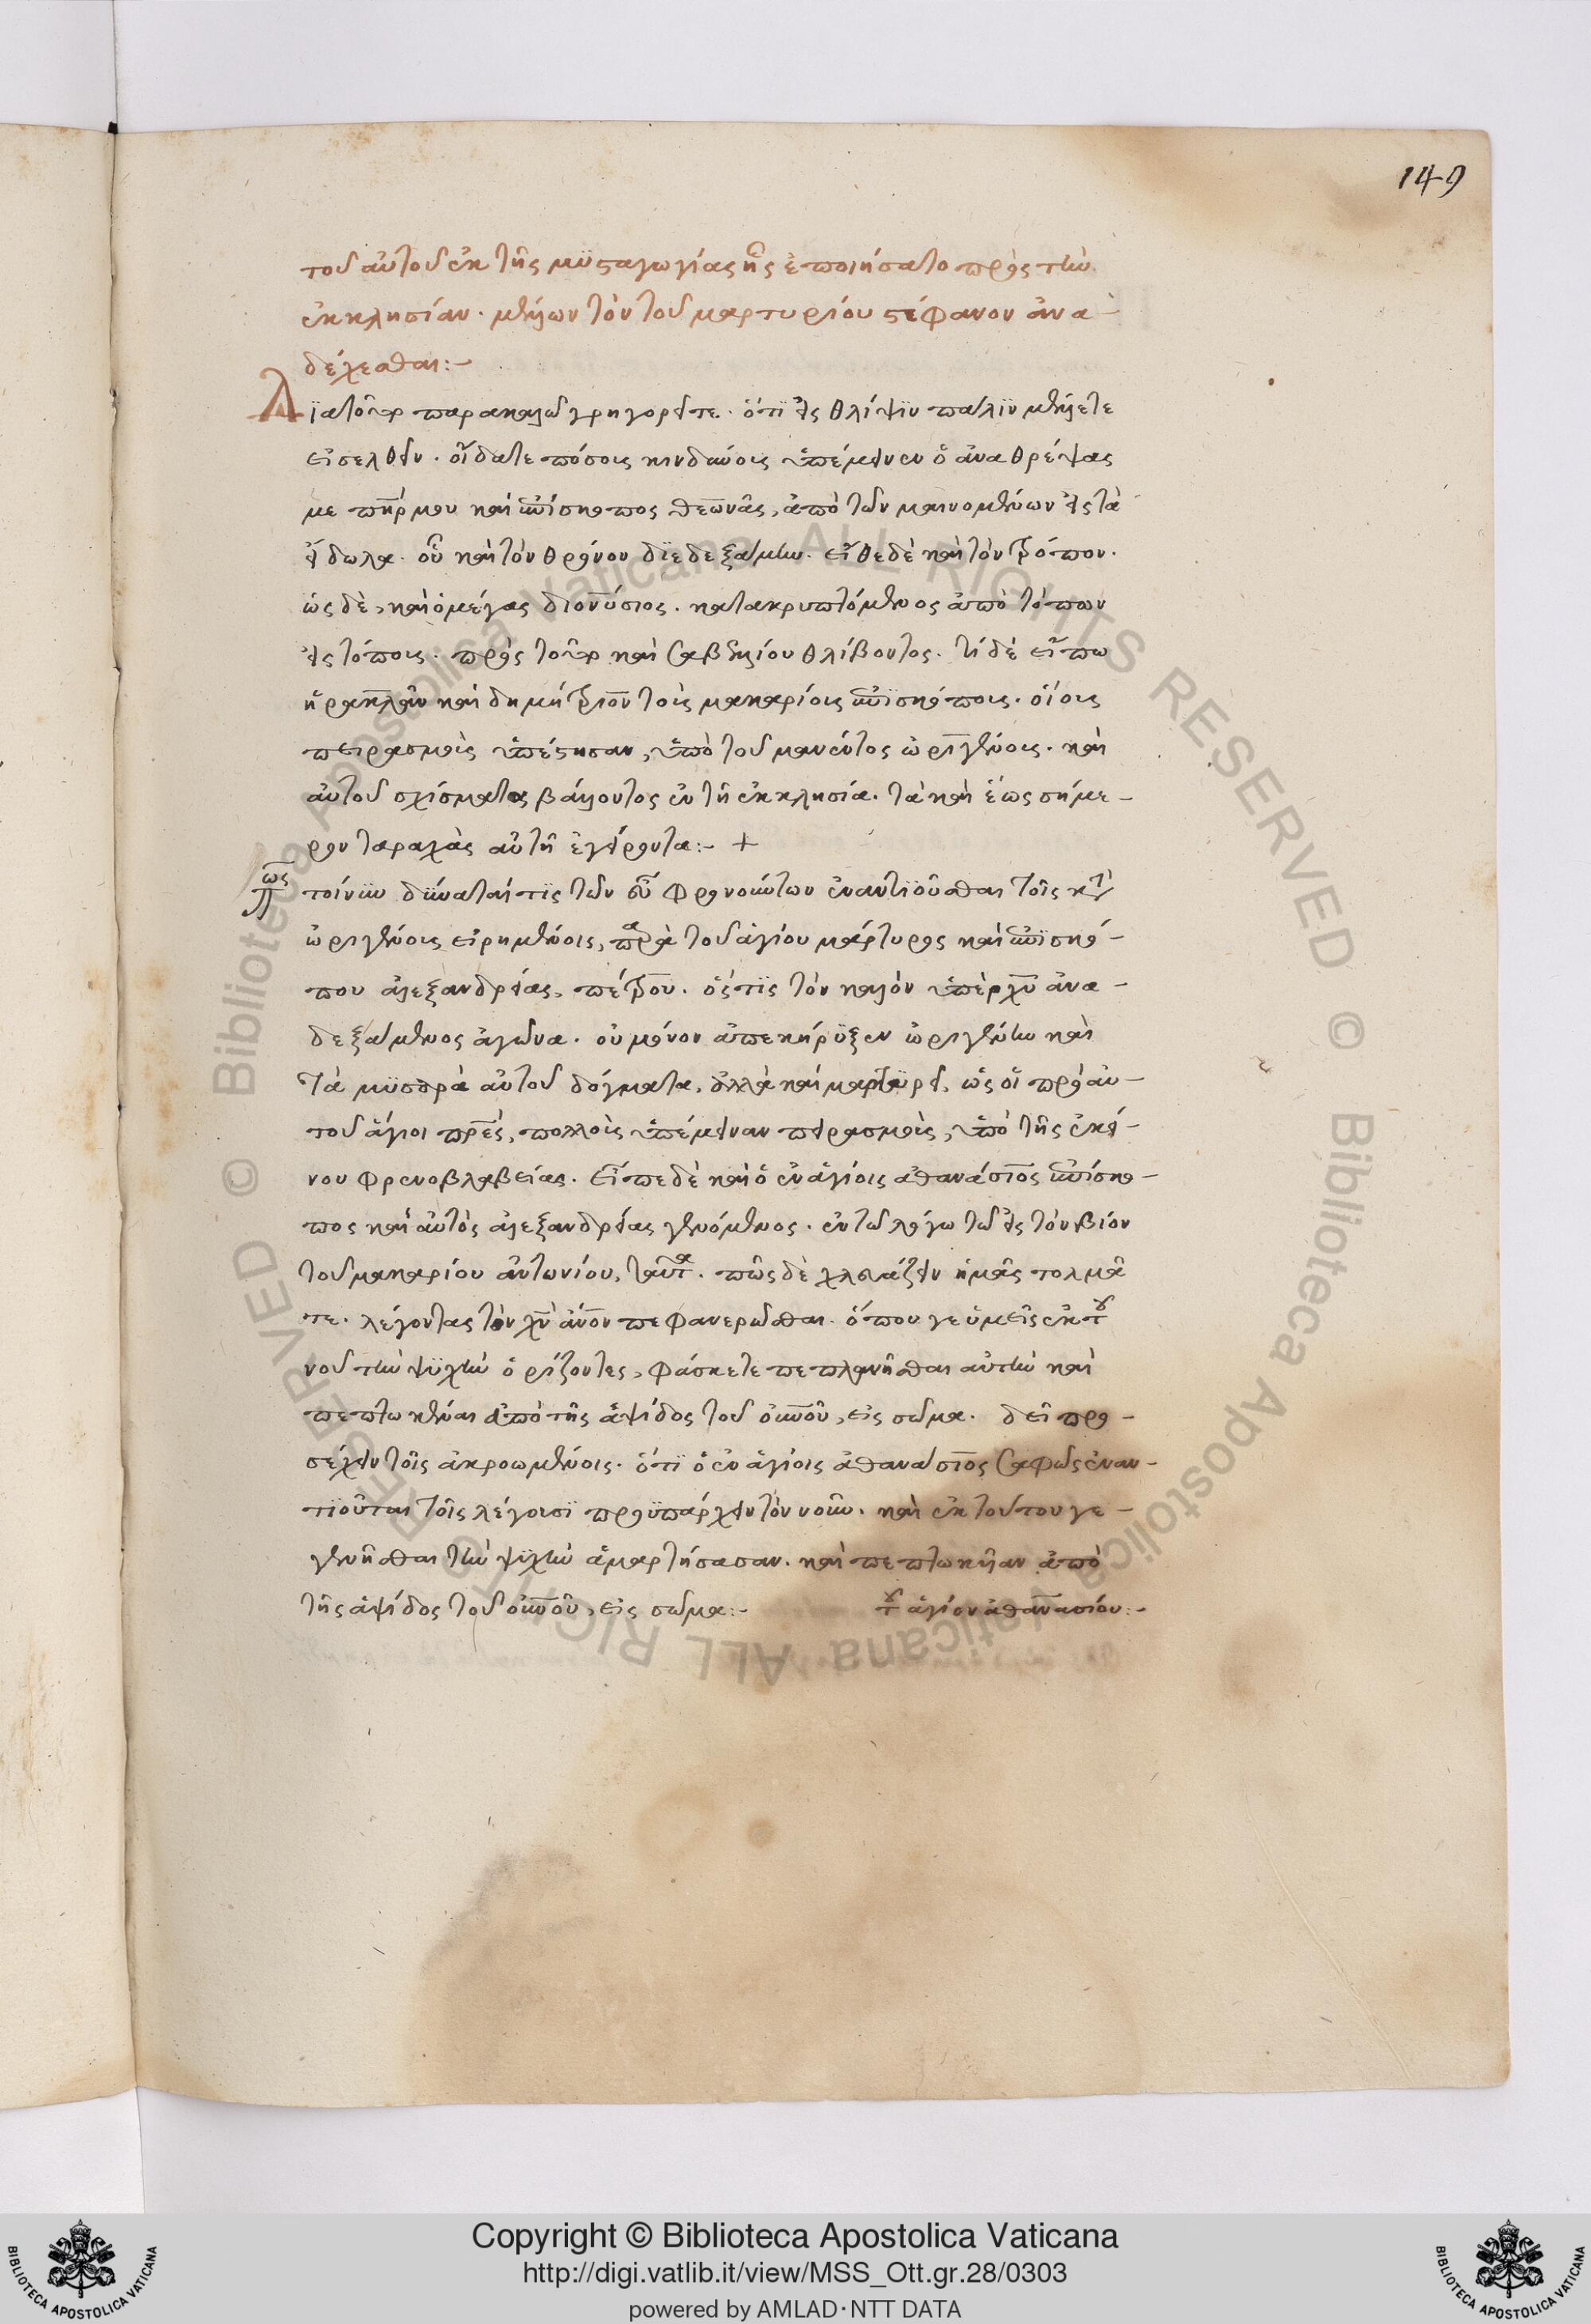 149
τοῦ αὐτοῦ ἐκ τῆς μϋσταγωγίας ἧς ἐποιήσατο πρὸς τὴν
ἐκκλησίαν. μέλλων τὸν τοῦ μαρτυρίου στέφανον ἀνα-
δέχεσθαι:-
Δϊατοῦτο παρακαλῶ γρηγορεῖτε. ὅτϊ εἰς θλίψϊν πάλϊν μέλλετε
εἰσελθεῖν. οἴδατε πόσοις κινδύνοις ὑπέμεινεν ὁ ἀναθρέψας
με πη̅ρ μου καὶ ἐπίσκοπος θεωνᾶς, ἀπὸ τῶν μαινομένων εἰς τὰ
εἴδωλα. οὗ καὶ τὸν θρόνον δϊεδεξάμην. εἴθε δὲ καὶ τὸν τρόπον.
ὡς δὲ, καὶ ὁ μέγας διονύσιος. κατακρυπτόμενος ἀπὸ τόπων
εἰς τόποις. πρὸς τοῦτο καὶ σαβελλίου θλίβοντος. τί δὲ εἴπω
ἡρακλᾶν καὶ δημήτριον τοῖς μακαρίοις ἐπισκόποις. οἵοις
πειρασμοῖς ὑπέστησαν, ὑπὸ τοῦ μανέντος ὠριγένοις. καὶ
αὐτοῦ σχίσματα βάλλοντος ἐν τῆ ἐκκλησία. τὰ καὶ ἕως σήμε-
ρον ταραχὰς αὐτῆ ἐγείροντα:- +
Πῶς τοίνϋν δύναταί τϊς τῶν εὖ φρονούντων ἐναντϊοῦσθαι τοῖς κατὰ
ὠριγένοις εἰρημένοις, παρὰ τοῦ ἁγίου μάρτυρος καὶ ἐπϊσκό-
που ἀλεξανδρείας, πέτρου. ὅστϊς τὸν καλὸν ὑπὲρ χυ̅ ἀνα-
δεξάμενος ἀγῶνα. οὐ μόνον ἀπεκήρϋξεν ὠριγένην καὶ
τὰ μϋσαρὰ αὐτοῦ δόγματα, ἀλλὰ καὶ μαρτϋρεῖ, ὡς οἱ πρὸ αὐ-
τοῦ ἅγιοι πρε̅ς, πολλοῖς ὑπέμειναν πειρασμοῖς, ὑπὸ τῆς ἐκεί-
νου φρενοβλαβείας. εἶπε δὲ καὶ ὁ ἐν ἁγίοις ἀθανάσιος ἐπίσκο-
πος καὶ αὐτὸς ἀλεξανδρείας γενόμενος. ἐν τῶ λόγω τῶ εἰς τὸν βίον
τοῦ μακαρίου ἀντωνίου, ταῦτα. πῶς δὲ χλευάζειν ἡμᾶς τολμᾶ
τε. λέγοντας τὸν χν̅ ἄνο̅ν πεφανερῶσθαι. ὅπου γε ὑμεῖς ἐκ τοῦ
νοῦ τὴν ψϋχὴν ὁρίζοντες, φάσκετε πεπλανῆσθαι αὐτὴν καὶ
πεπτωκέναι ἀπὸ τῆς ἁψίδος τοῦ οὐνοῦ, εἰς σῶμα. δεῖ προ-
σέχειν τοῖς ἀκροωμένοις. ὅτϊ ὁ ἐν ἁγίοις ἀθανάσιος σαφῶς ἐναν-
τϊοῦται τοῖς λέγουσϊ προϋπάρχειν τὸν νοῦν. καὶ ἐκ τούτου γε-
γενῆσθαι τὴν ψϋχὴν ἁμαρτήσασαν. καὶ πεπτωκῆαν ἀπὸ
τῆς ἁψίδος τοῦ οὐνοῦ, εἰς σῶμα:- τοῦ ἁγίου ἀθανασίου:-
Copyright © Biblioteca Apostolica Vaticana
http://digi.vatlib.it/view/MSS_Ott.gr.28/0303
powered by AMLAD·NTT DATA
BIBLIOTECA APOSTOLICA VATICANA
BIBLIOTECA APOSTOLICA VATICANA
© Biblioteca Apostolica Vaticana ALL RIGHTS RESERVED © Biblioteca Apostolica Vaticana ALL RIGHTS RESERVED